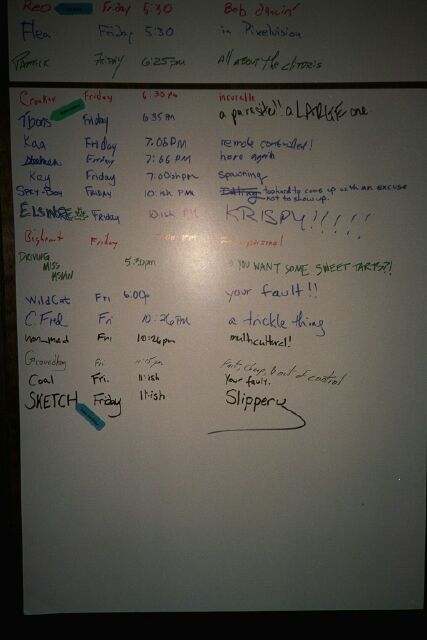 Reo Friday 5:30 Bob dancin'
Flea Friday 5:30 in Pixelvision
Patrick Friday 6:25pm All about the clitoris
Friday 6:30 PM incurable
Friday 6:35 PM a parasite!! a LARGE one
Kaa Friday 7:06PM remote controlled!
Friday 7:06 PM here again
Key Friday 7:00ishpm Spawning
Spey-Boy FRIDAY 10:ish PM too hard to come up with an excuse
not to show up.
ELSINORE Friday 10ish PM KRISPY!!!!!!
Friday
DRIVING MISS ASIAN 5:30pm YOU WANT SOME SWEET TARTS?!
WildCat Fri 6:00p your fault!!
C. Fred Fri 10:26PM a trickle thing
Fri 10:26pm multicultural!
Groundhog Fri 11:15pm out of control
Coal Fri. 11:ish Your fault.
SKETCH Friday 11:ish Slippery